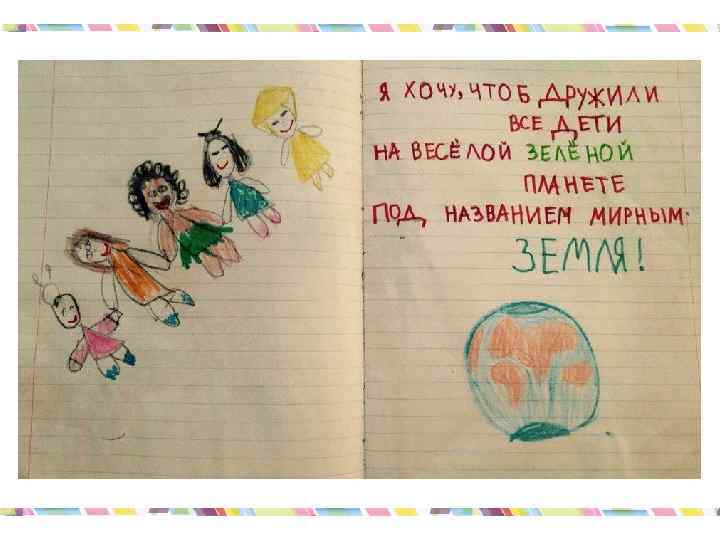 Я ХОЧУ, ЧТОБ ДРУЖИЛИ
ВСЕ ДЕТИ
НА ВЕСЁЛОЙ ЗЕЛЁНОЙ
ПЛАНЕТЕ
ПОД НАЗВАНИЕМ МИРНЫМ
ЗЕМЛЯ!